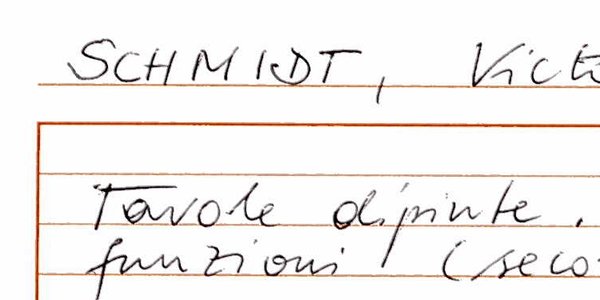 SCHMIDT, Victo
Tavole dipinte.
funzioni (seco